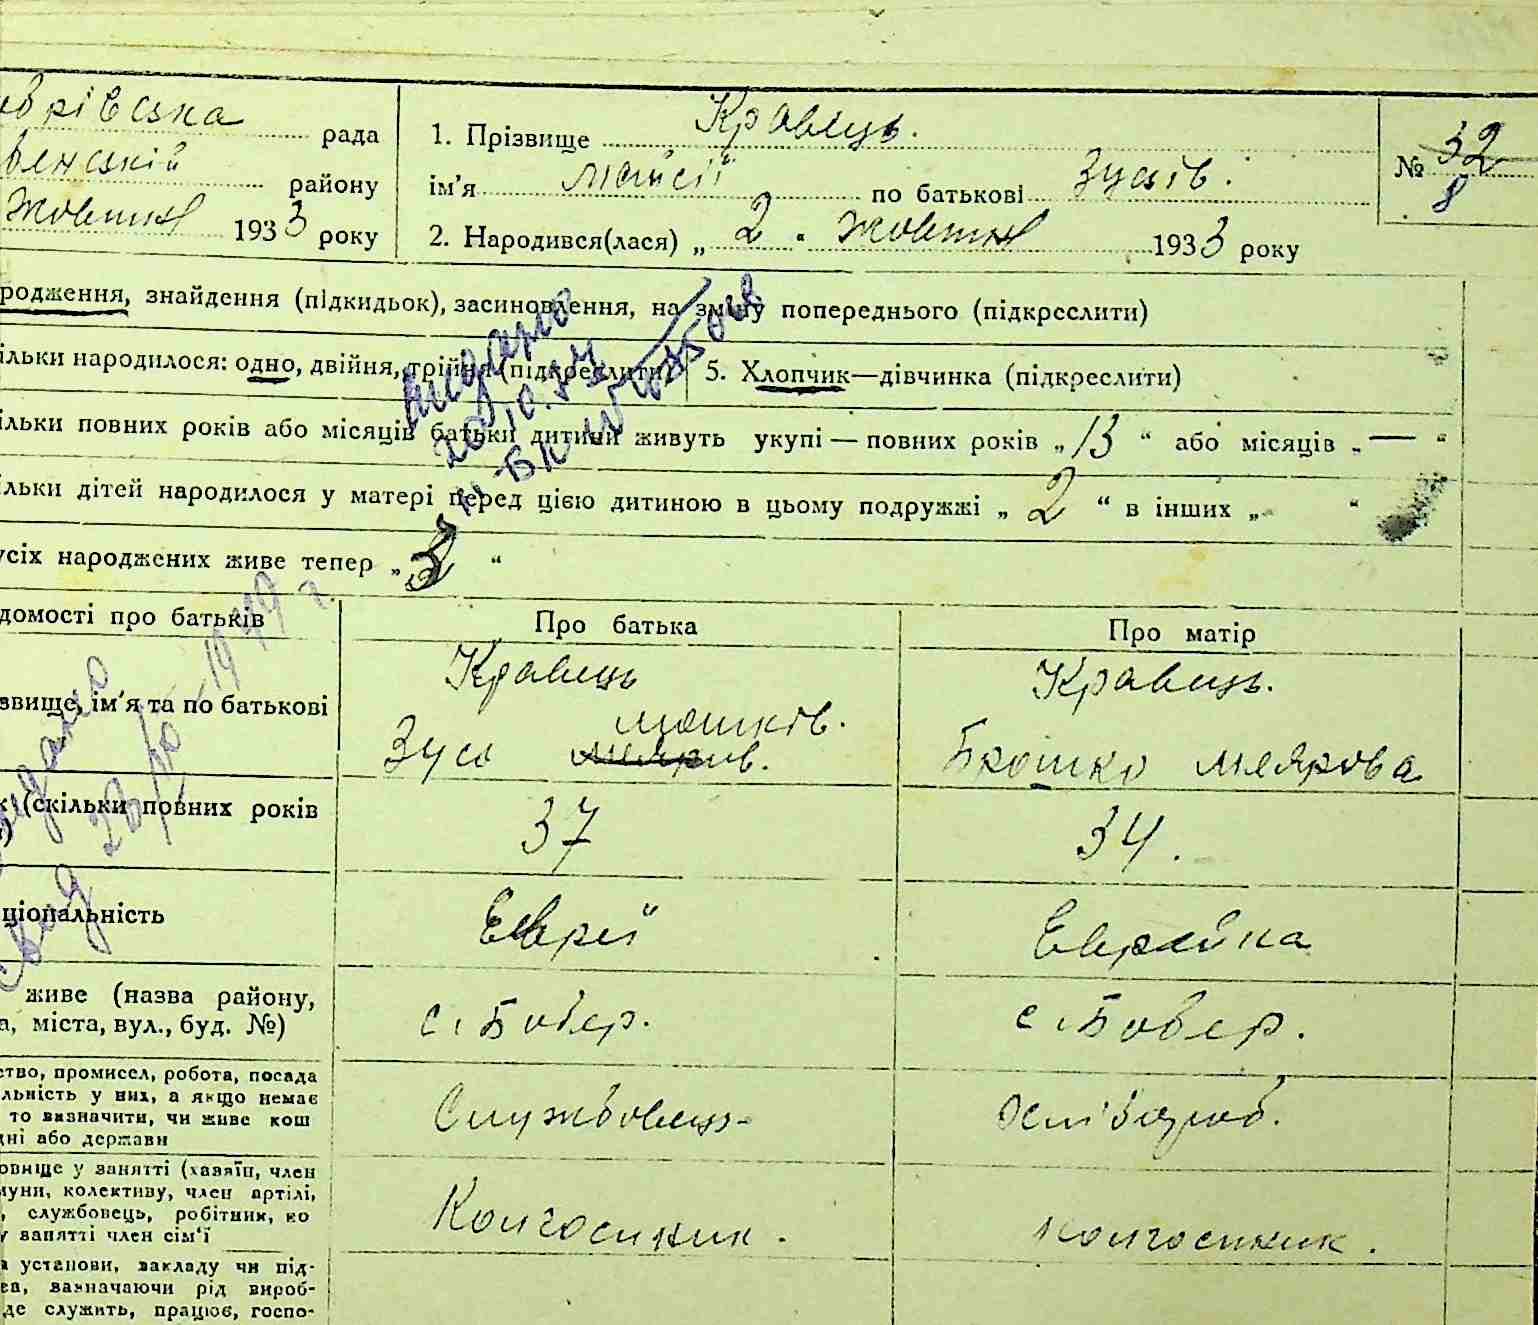 рівська рада
1. Прізвище Кравець.
№ 32
8
району
ім'я Мойсій по батькові Зусів.
Жовтня 1933 року
2. Народився(лася) „ 2 “ Жовтня 1933 року
родження, знайдення (підкидьок), засиновлення, на зміну попереднього (підкреслити)
ільки народилося: одно, двійня, трійня (підкреслити)
5. Хлопчик—дівчинка (підкреслити)
ільки повних років або місяців батьки дитини живуть укупі — повних років „ 13 “ або місяців „ — “
ільки дітей народилося у матері перед цією дитиною в цьому подружжі „ 2 “ в інших „ “
усіх народжених живе тепер „ 3 “
Видано
1949 г.
домості про батьків
Про батька
Про матір
звище, ім'я та по батькові
Кравець
Мошків.
Зусь
Кравець.
Брошко Меярова
(скільки повних років
37
34.
ціональність
Еврей
Еврейка
живе (назва району,
а, міста, вул., буд. №)
с. Бобер.
с. Бобер.
ство, промисел, робота, посада
льність у них, а якщо немає
то визначити, чи живе кош
дні або держави
Службовець
Хлібороб.
овище у занятті (хазяїн, член
муни, колективу, член артілі,
, службовець, робітник, по
у занятті член сім'ї
Колгоспник.
колгоспник.
а установи, закладу чи під-
ва, зазначаючи рід вироб-
де служить, працює, госпо-